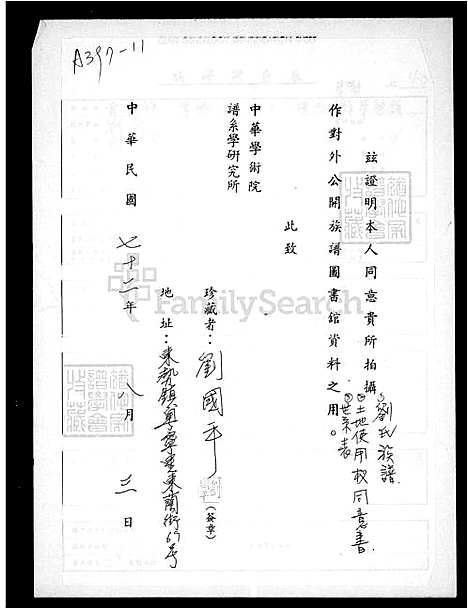 A397-11
茲證明本人同意貴所拍攝
①劉氏族譜
②土地使用权同意書
③世系表
作對外公開族譜圖書館資料之用。
此致
中華學術院
譜系學研究所
珍藏者：劉國平（簽章）
地址：東勢鎮粵寧里東蘭街65号
中華民國七十二年八月三日
FamilySearch